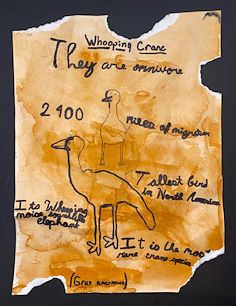 Whooping Crane
They are omnivore
2400
miles of migration
Tallest bird
in North America
Its Whooping
noise sounds
elephant
It is the
rare crane species
(Grus americana)